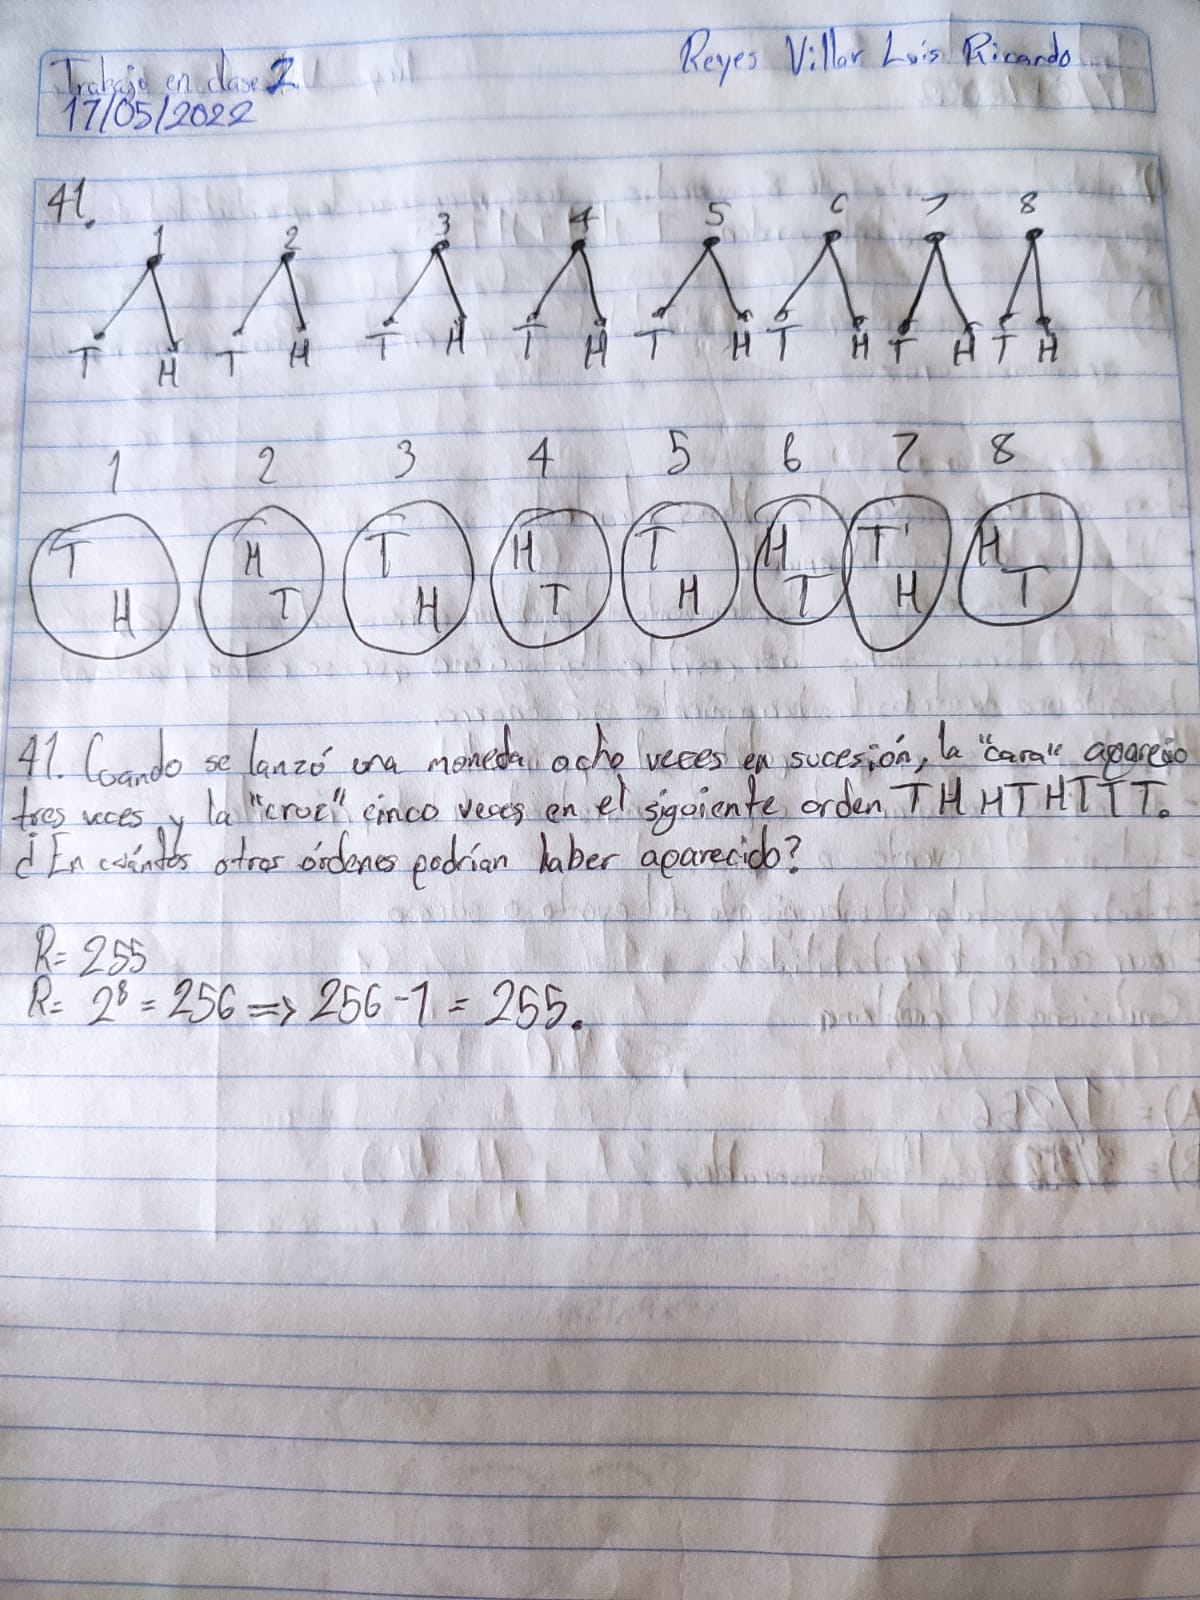 Trabajo en clase 2
Reyes Villar Luis Ricardo
17/05/2022
41.
1 2 3 4 5 6 7 8
T H T H T H T H T H T H T H T H
1 2 3 4 5 6 7 8
T H T H T H T H
H T H T H T H T
41. Cuando se lanzó una moneda ocho veces en sucesión, la "cara" apareció
tres veces y la "cruz" cinco veces en el siguiente orden THHTHTTT.
¿En cuántos otros órdenes podrían haber aparecido?
R= 255
R= 2⁸ = 256 => 256 - 1 = 255.